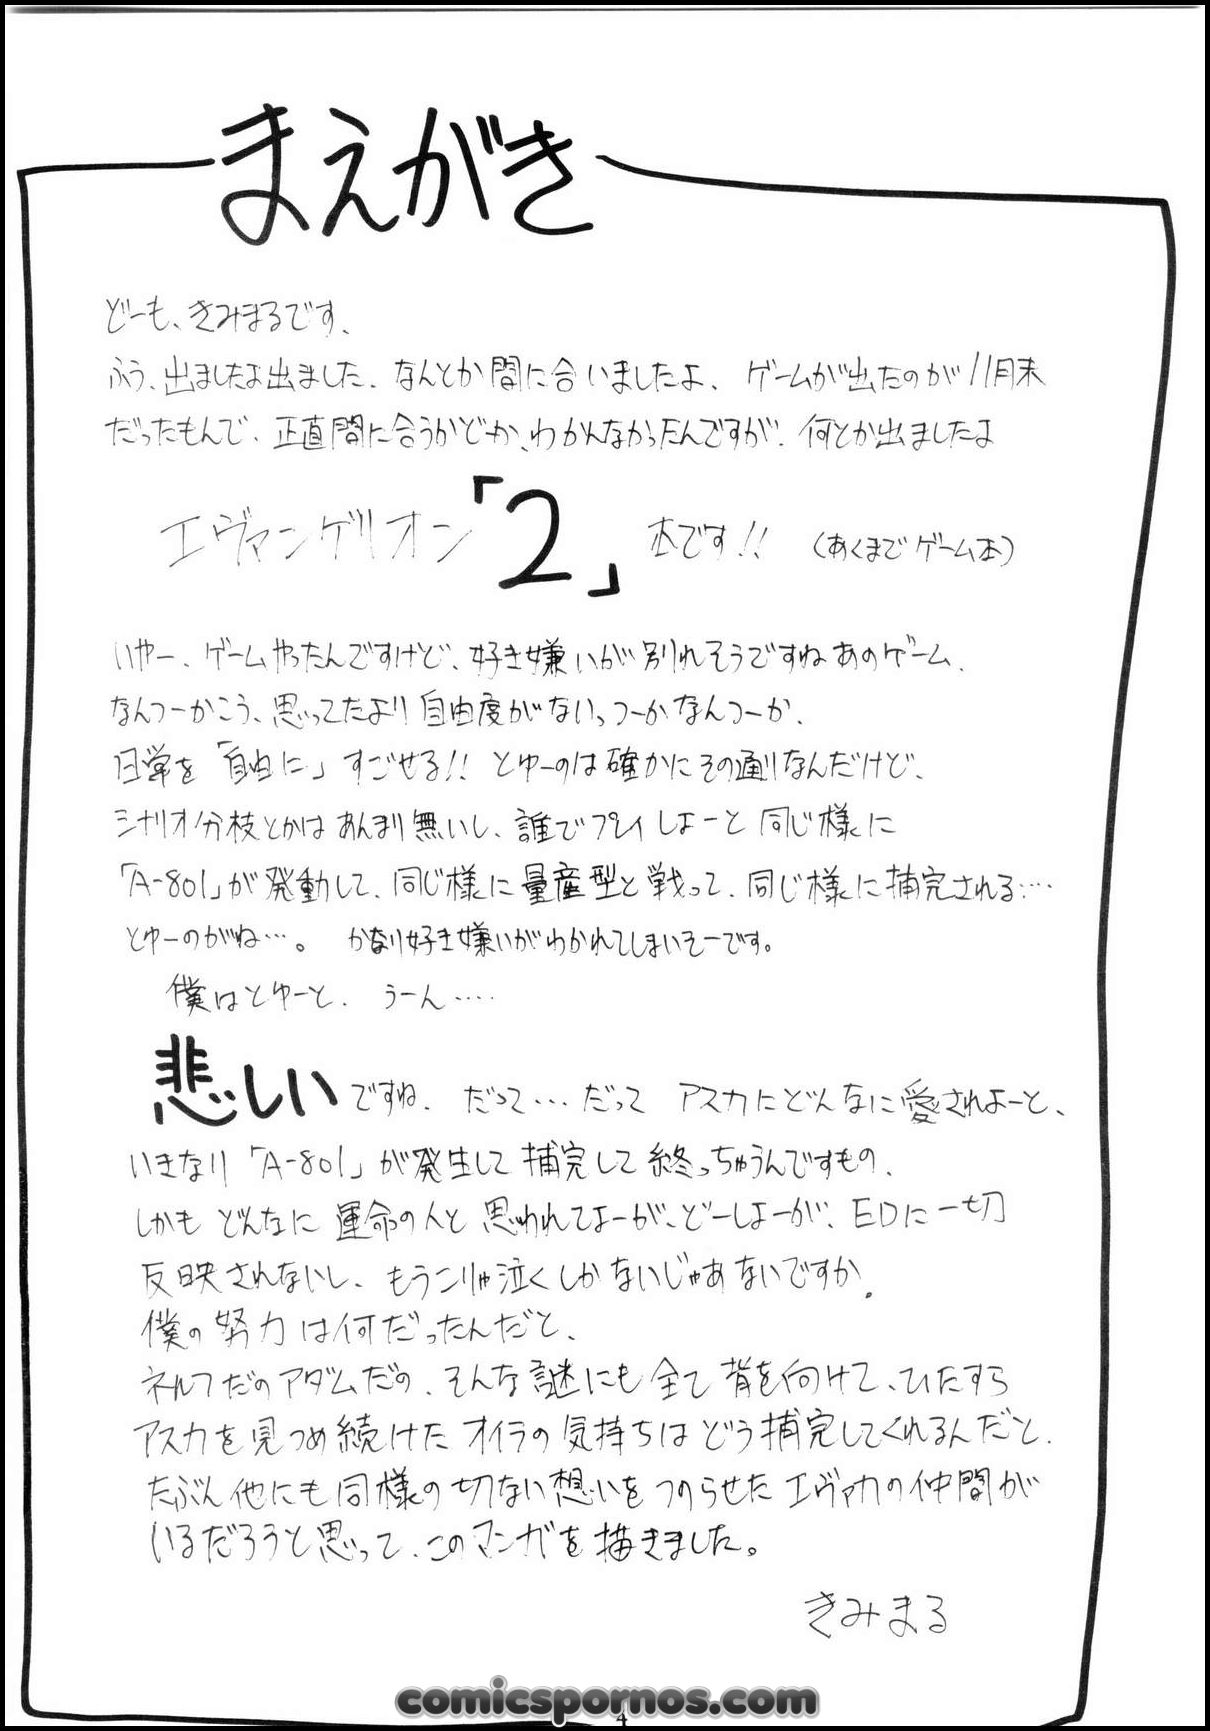 まえがき
どーも、きみまるです、
ふう、出ましたよ出ました、なんとか間に合いましたよ、ゲームが出たのが11月末
だったもんで、正直間に合うかどーか、わかんなかったんですが、何とか出ましたよ
エヴァンゲリオン「2」本です!! (あくまでゲーム本)
いやー、ゲームやったんですけど、好き嫌いが別れそうですねあのゲーム、
なんつーかこう、思ってたより自由度がないっつーかなんつーか、
日常を「自由に」すごせる!! とゆーのは確かにその通りなんだけど、
シナリオ分枝とかはあんまり無いし、誰でプレイしよーと同じ様に
「A-801」が発動して、同じ様に量産型と戦って、同じ様に補完される…
とゆーのがね…。 かなり好き嫌いがわかれてしまいそーです。
僕はとゆーと、うーん‥‥
悲しいですね、だって…だって アスカにどんなに愛されよーと、
いきなり「A-801」が発生して補完して終っちゃうんですもの、
しかもどんなに運命の人と思われてよーが、どーしよーが、EDに一切
反映されないし、もうこりゃ泣くしかないじゃあないですか、
僕の努力は何だったんだと、
ネルフだのアダムだの、そんな謎にも全て背を向けて、ひたすら
アスカを見つめ続けたオイラの気持ちはどう補完してくれるんだと、
たぶん他にも同様の切ない想いをつのらせたエヴァカの仲間が
いるだろうと思って、このマンガを描きました。
きみまる
comicspornos.com
4